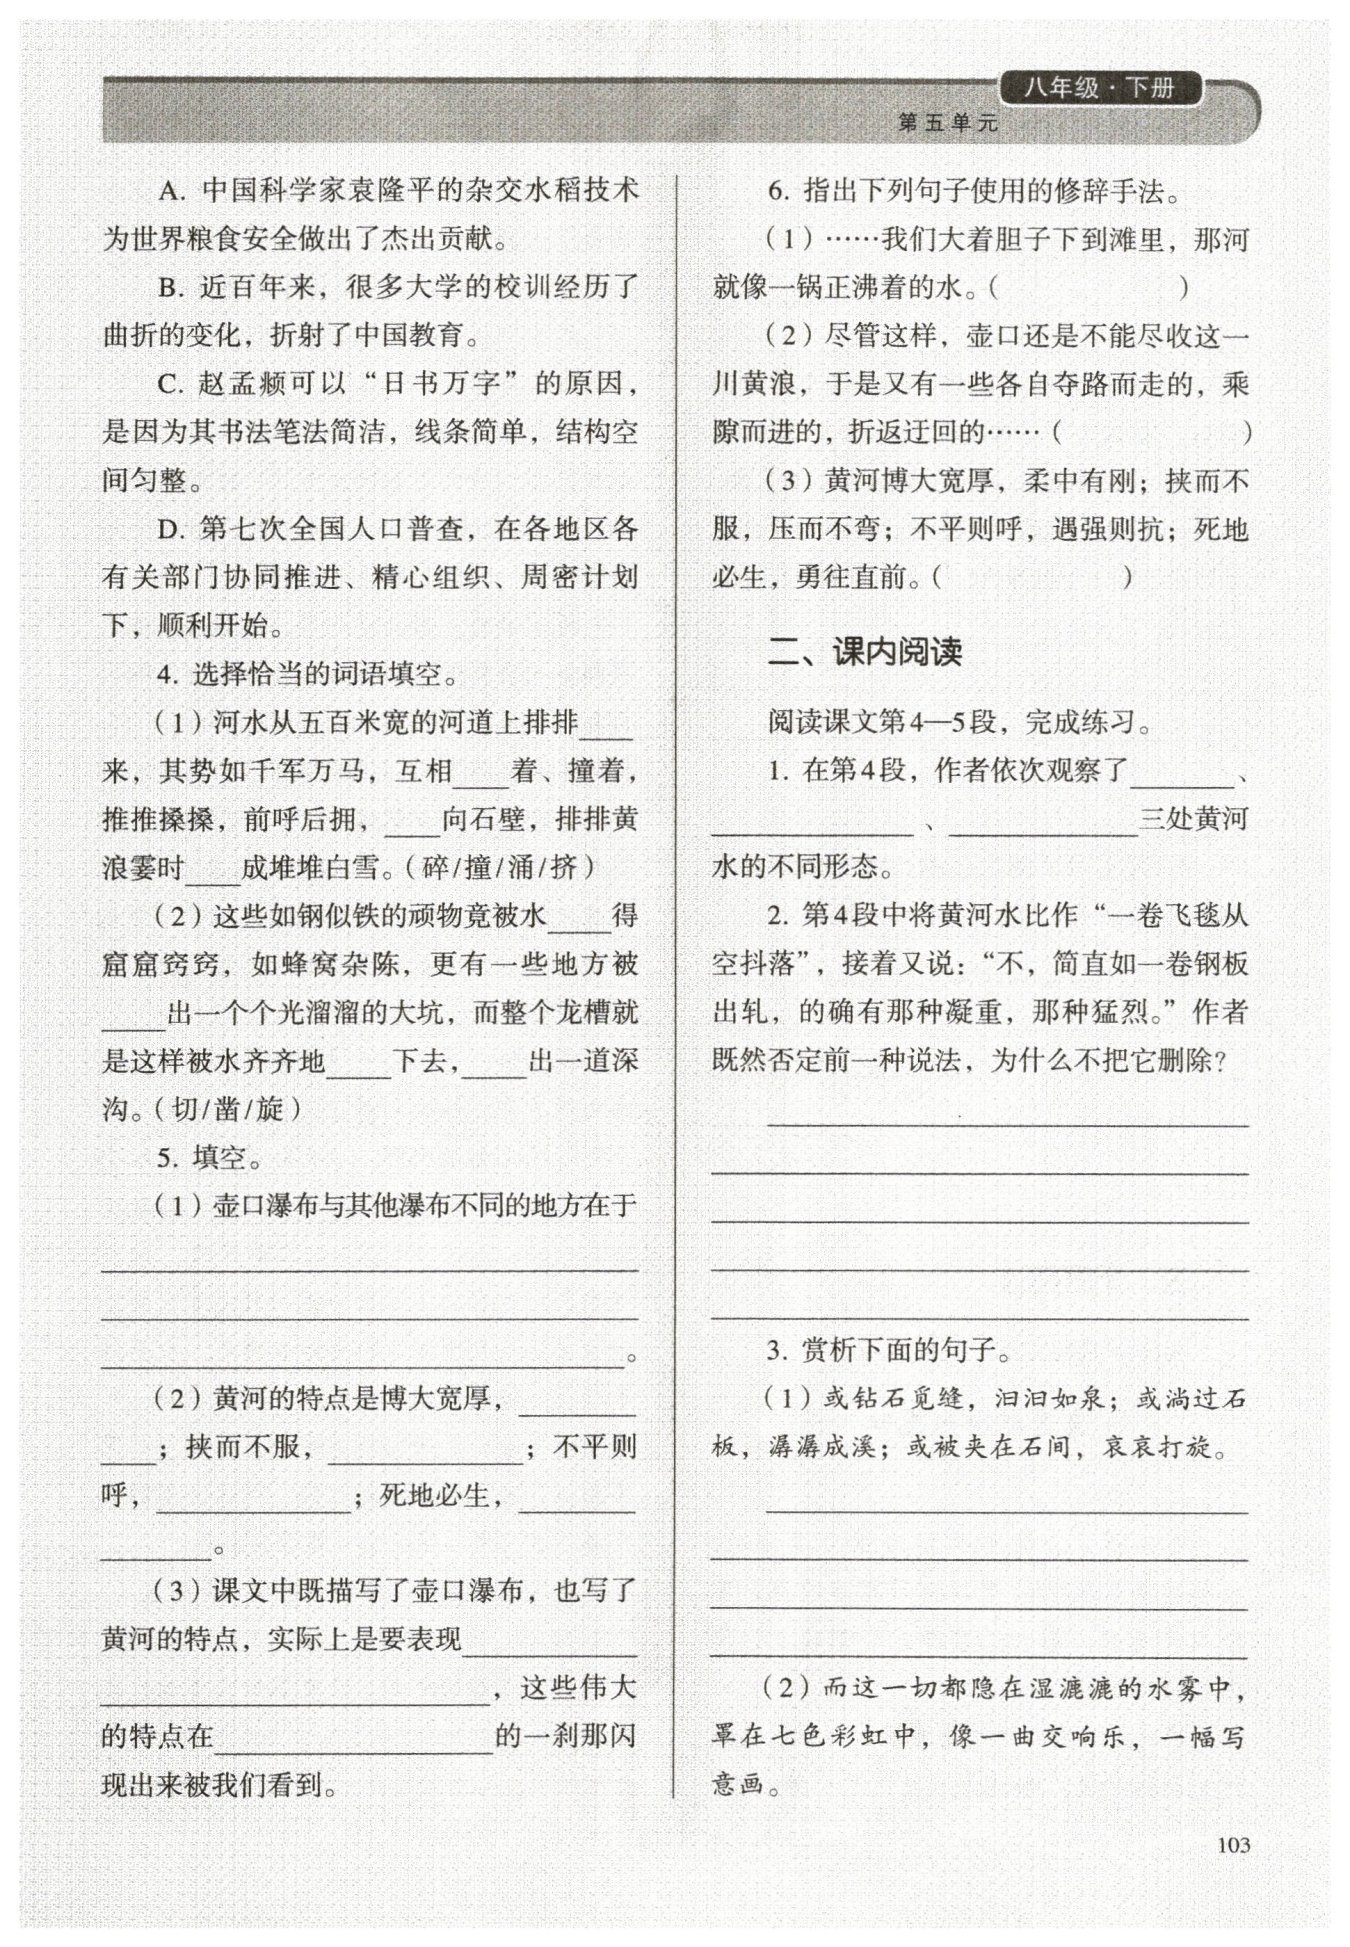 八年级·下册
第五单元
A. 中国科学家袁隆平的杂交水稻技术
为世界粮食安全做出了杰出贡献。
B. 近百年来，很多大学的校训经历了
曲折的变化，折射了中国教育。
C. 赵孟頫可以“日书万字”的原因，
是因为其书法笔法简洁，线条简单，结构空
间匀整。
D. 第七次全国人口普查，在各地区各
有关部门协同推进、精心组织、周密计划
下，顺利开始。
4. 选择恰当的词语填空。
（1）河水从五百米宽的河道上排排____
来，其势如千军万马，互相____着、撞着，
推推搡搡，前呼后拥，____向石壁，排排黄
浪霎时____成堆堆白雪。（碎/撞/涌/挤）
（2）这些如钢似铁的顽物竟被水____得
窟窟窍窍，如蜂窝杂陈，更有一些地方被
____出一个个光溜溜的大坑，而整个龙槽就
是这样被水齐齐地____下去，____出一道深
沟。（切/凿/旋）
5. 填空。
（1）壶口瀑布与其他瀑布不同的地方在于
________________
________________
________________。
（2）黄河的特点是博大宽厚，________
____；挟而不服，____________；不平则
呼，____________；死地必生，________
________。
（3）课文中既描写了壶口瀑布，也写了
黄河的特点，实际上是要表现____________
________________________，这些伟大
的特点在________________的一刹那闪
现出来被我们看到。
6. 指出下列句子使用的修辞手法。
（1）……我们大着胆子下到滩里，那河
就像一锅正沸着的水。（　　　　　　）
（2）尽管这样，壶口还是不能尽收这一
川黄浪，于是又有一些各自夺路而走的，乘
隙而进的，折返迂回的……（　　　　　　）
（3）黄河博大宽厚，柔中有刚；挟而不
服，压而不弯；不平则呼，遇强则抗；死地
必生，勇往直前。（　　　　　　）
二、课内阅读
阅读课文第4—5段，完成练习。
1. 在第4段，作者依次观察了________、
____________、____________三处黄河
水的不同形态。
2. 第4段中将黄河水比作“一卷飞毯从
空抖落”，接着又说：“不，简直如一卷钢板
出轧，的确有那种凝重，那种猛烈。”作者
既然否定前一种说法，为什么不把它删除？
________________
________________
________________
________________
________________
3. 赏析下面的句子。
（1）或钻石觅缝，汩汩如泉；或淌过石
板，潺潺成溪；或被夹在石间，哀哀打旋。
________________
________________
________________
________________
（2）而这一切都隐在湿漉漉的水雾中，
罩在七色彩虹中，像一曲交响乐，一幅写
意画。
103